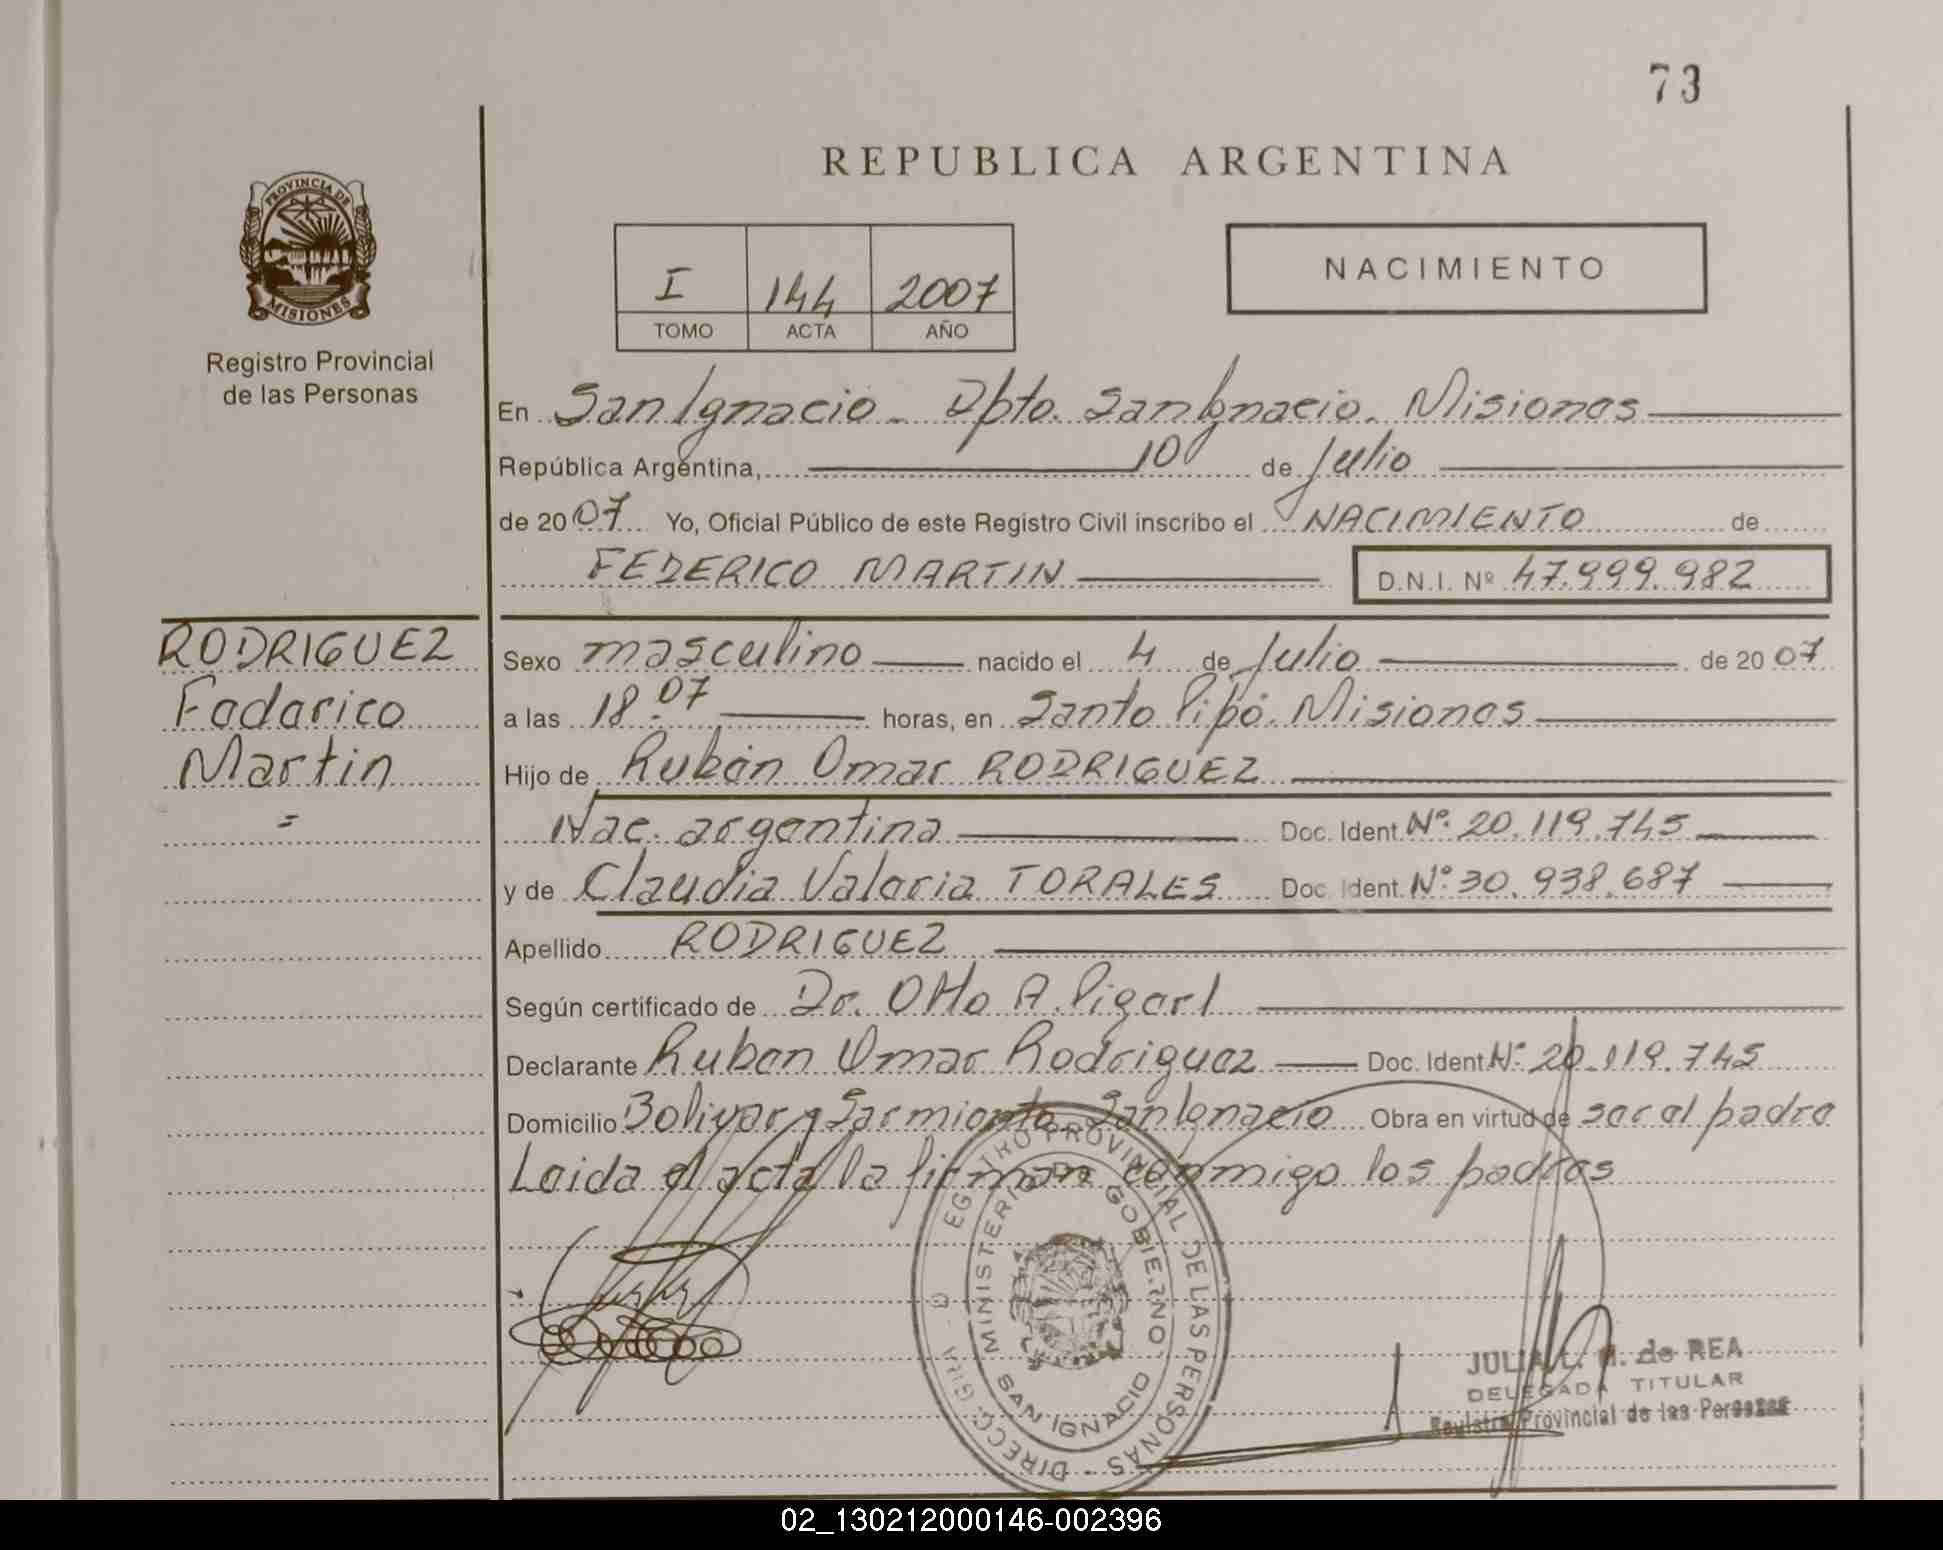 73
REPUBLICA ARGENTINA
PROVINCIA DE
MISIONES
Registro Provincial
de las Personas
I 144 2007
TOMO ACTA AÑO
NACIMIENTO
En San Ignacio - Dpto. San Ignacio. Misiones
República Argentina, 10 de Julio
de 2007 Yo, Oficial Público de este Registro Civil inscribo el NACIMIENTO de
FEDERICO MARTIN D.N.I. Nº 47.999.982
RODRIGUEZ
Federico
Martin
=
Sexo masculino nacido el 4 de Julio de 2007
a las 18.07 horas, en Santo Pipó. Misiones
Hijo de Rubén Omar RODRIGUEZ
Nac. argentina Doc. Ident. Nº. 20.119.745
y de Claudia Valeria TORALES Doc. Ident. Nº. 30.938.687
Apellido RODRIGUEZ
Según certificado de Dr. Otto A.
Declarante Ruben Omar Rodriguez Doc. Ident. Nº. 20.119.745
Domicilio Bolivar y Sarmiento San Ignacio Obra en virtud de ser el padre
Leida el acta la firman conmigo los padres
REGISTRO PROVINCIAL DE LAS PERSONAS -
MINISTERIO DE GOBIERNO
SAN IGNACIO
JULIA L. M. de REA
DELEGADA TITULAR
Registro Provincial de las Personas
02_130212000146-002396